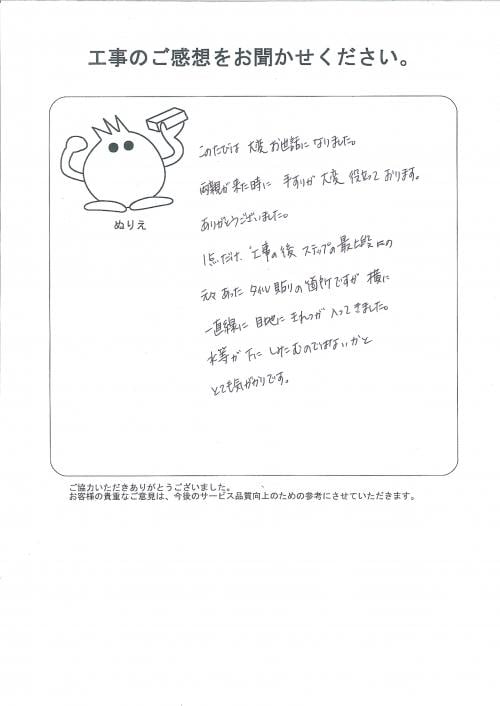 工事のご感想をお聞かせください。
このたびは 大変 お世話に なりました。
両親が 来た時に 手すりが 大変 役立って おります。
ありがとうございました。
1点だけ、工事の後 ステップの最上段に
元々 あった タイル貼りの箇所ですが 横に
一直線に 目地に きれつが 入って きました。
水等が 下に しみこむのではないかと
とても気がかりです。
ぬりえ
ご協力いただきありがとうございました。
お客様の貴重なご意見は、今後のサービス品質向上のための参考にさせていただきます。